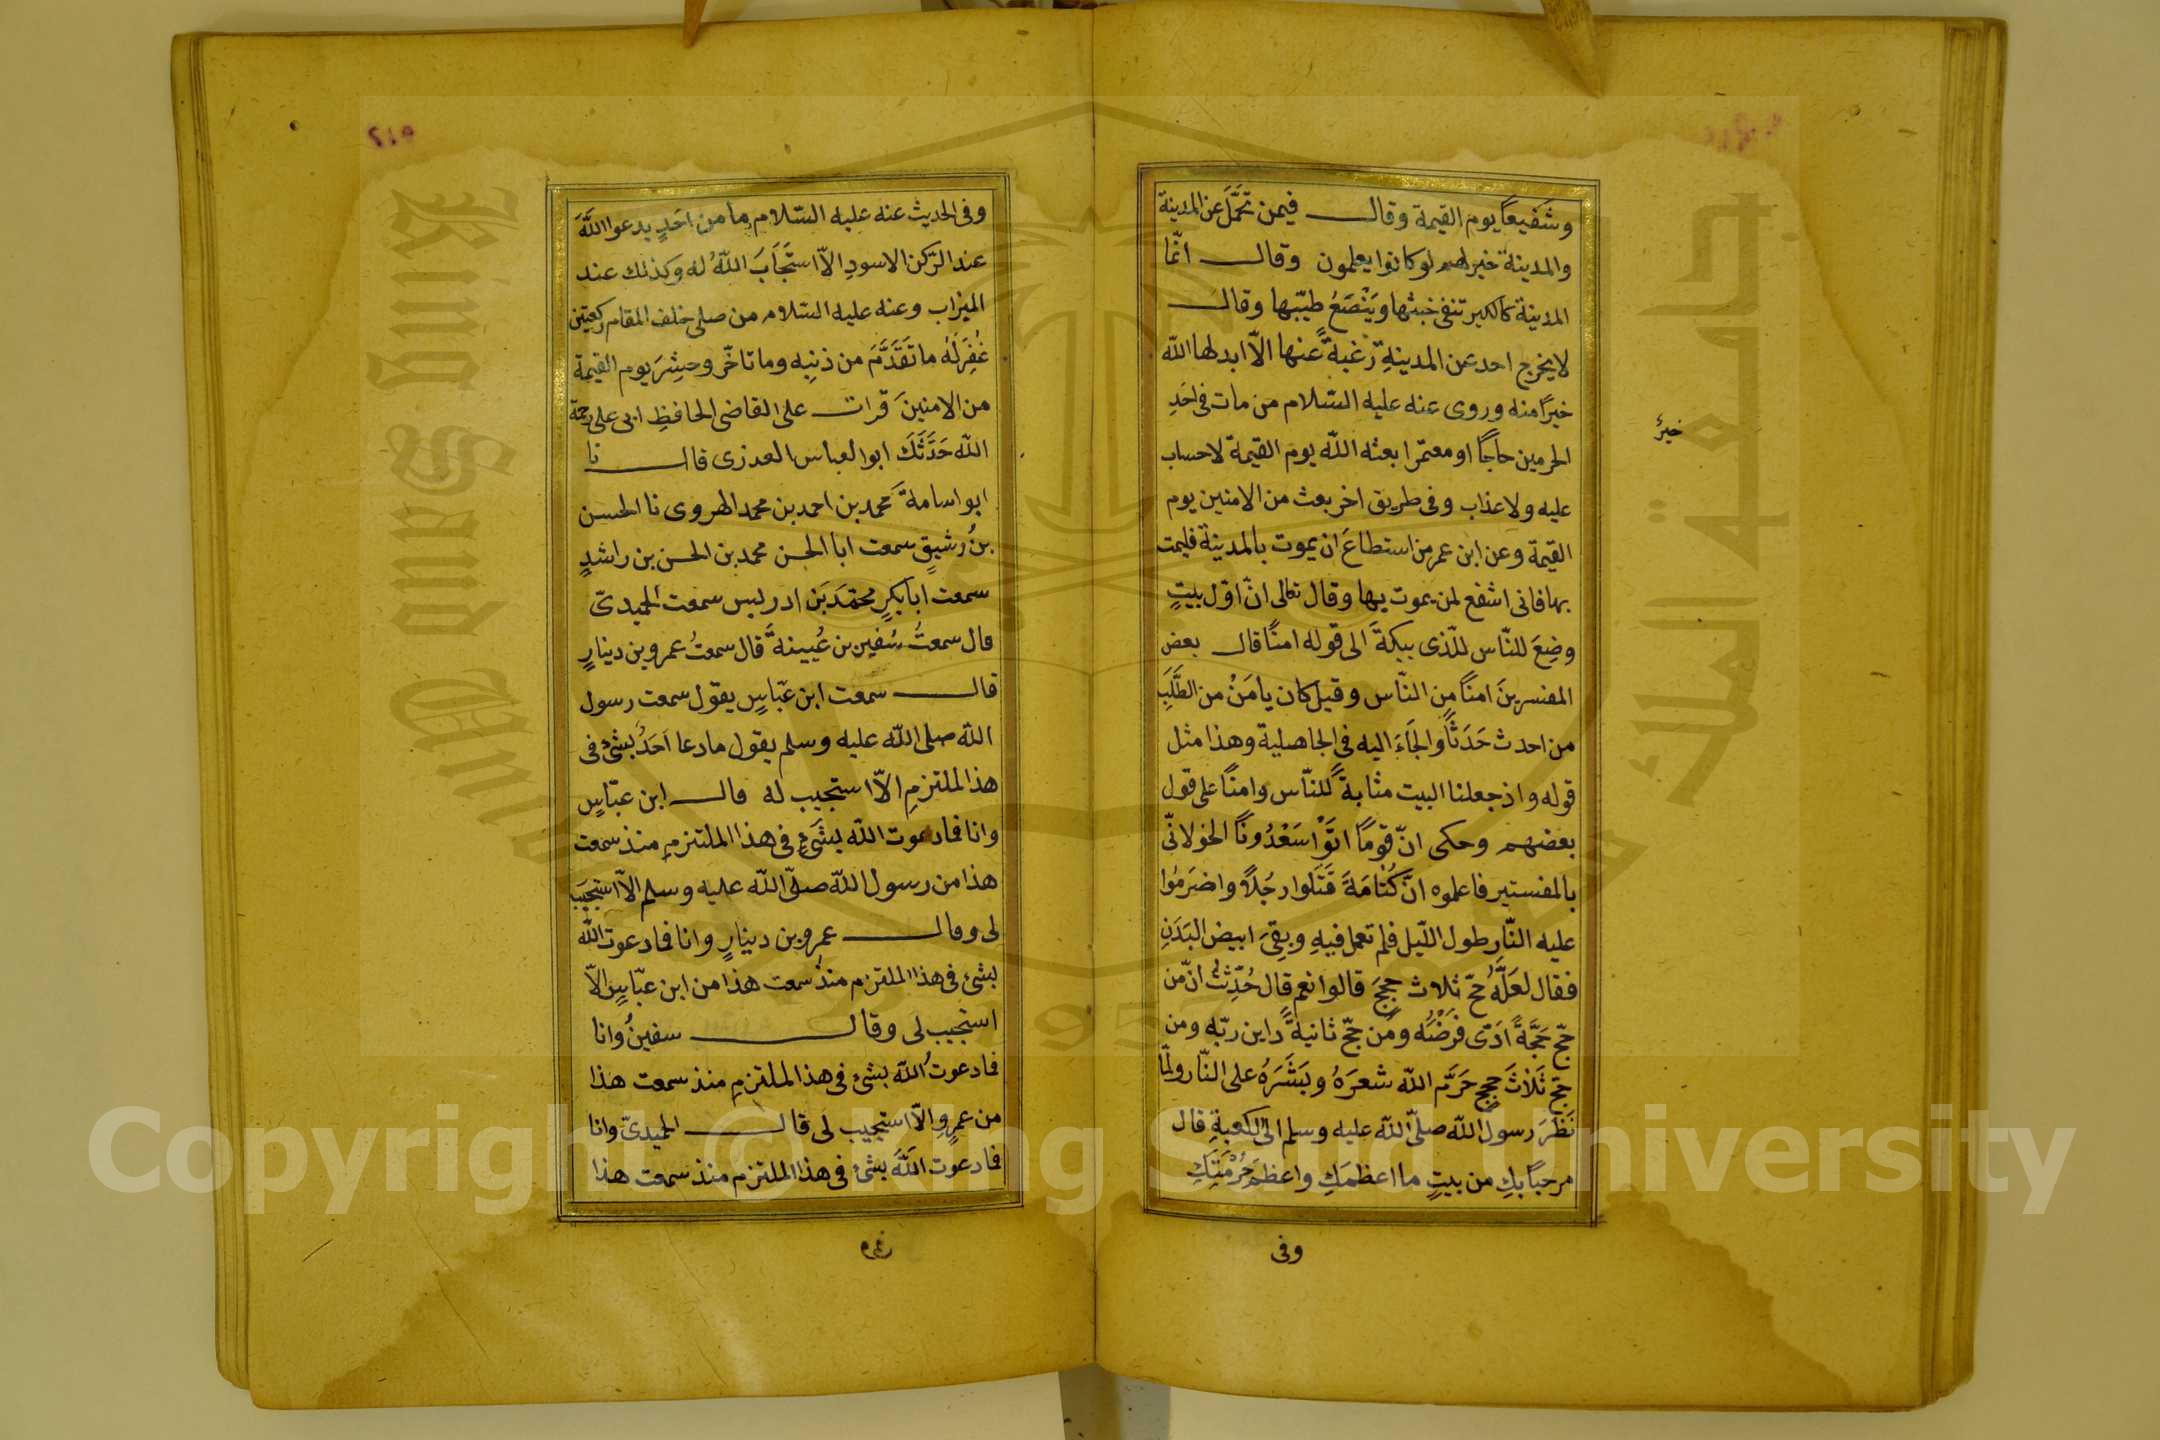 وشفيعًا يوم القيمة وقال فيمن تحمّل عن المدينة
والمدينة خير لهم لو كانوا يعلمون وقال انّما
المدينة كالكير تنفى خبثها ويَنْصَعُ طيّبها وقال
لا يخرج احد عن المدينةِ رغبةً عنها الّا ابدلها الله
خيرًا منه وروى عنه عليه السّلام من مات فى احَدِ
الحرمين حاجًا او معتمرا بعثه اللّه يوم القيمة لا حساب
عليه ولا عذاب وفى طريق اخر بعث من الامنين يوم
القيمة وعن ابن عمر من استطاعَ ان يموت بالمدينة فليمت
بها فانى اشفع لمن يموت بها وقال تعالى انّ اوّل بيتٍ
وضِعَ للنّاس للّذى ببكةَ الى قوله امنًا قال بعض
المفسرينَ امنًا من النّاس وقيل كان يامَنُ من الطَّلَبِ
من احدث حَدَثًا والجَاءَ اليه فى الجاهلية وهذا مثل
قوله واذ جعلنا البيت مثابةً للنّاس وامنًا على قول
بعضهم وحكى انّ قومًا اتَوْا سَعْدُونًا الخولانّى
بالمفستير فاعلموه انّ كُتامَةَ قَتَلوا رجُلًا واضرَمُوا
عليه النّار طول اللّيل فلم تعمل فيهِ وبقىَ ابيض البَدَنِ
فقال لعَلَّهُ حَجّ ثلاث حِجَجَ قالوا نعم قال حُدِّثتُ انّ من
حَجّ حَجَّةً ادّى فَرْضَهُ ومن حَجّ ثانيةً داين ربّه ومن
حَجّ ثَلٰثَ حِجَجٍ حَرَّم اللّه شعرَهُ وبَشَرَهُ على النّار ولمّا
نَظَرَ رسول اللّه صلّى اللّه عليه وسلم الى الكعبةِ قال
مرحبًا بكِ من بيتٍ ما اعظمَكِ واعظم حُرْمَتَكِ
وفى
خيرٌ
٢١٥
وفى الحديث عنه عليه السّلام ما من احَدٍ يدعوا اللَّهَ
عند الرّكن الاسودِ الّا استَجَابَ اللّهُ له وكذلك عند
الميزاب وعنه عليه السّلام من صلى خلف المقام ركعتين
غُفِرَلَهُ ما تَقَدَّمَ من ذنبِه وما تاخّر وحشِرَ يوم القيمة
من الامنينَ قرات على القاضى الحافظِ ابى على رحمة
اللّه حَدَّثَكَ ابو العباس العذرى قال نا
ابو اسامةَ محمد بن احمد بن محمد الهروى نا الحسن
بنُ رشيقٍ سمعت ابا الحسن محمد بن الحسن بن راشدٍ
سمعت ابا بكرٍ محمّدَ بَن ادريس سمعت الحميدىّ
قال سمعتُ سُفين بن عُيينةَ قال سمعتُ عمرو بن دينارٍ
قال سمعت ابن عبّاسٍ يقول سمعت رسول
اللّه صلى اللّه عليه وسلم يقول ما دعا احَدٌ بشئٍ فى
هذا الملتزمِ الّا استجيب له قال ابن عبّاسٍ
وانا فما دعوت اللّه بشَىءٍ فى هذا الملتزمِ منذ سمعت
هذا من رسول اللّه صلّى اللّه عليه وسلم الّا استجيَب
لى وقال عمرو بن دينارٍ وانا فما دعوت اللّه
بشئٍ فى هذا الملتزم منذ سمعت هذا من ابن عبّاسٍ الّا
استجيب لى وقال سفينُ وانا
فما دعوتُ اللّه بشئٍ فى هذا الملتزمِ منذ سمعت هذا
من عمرٍو الّا استجيب لى قال الحميدىّ وانا
فما دعوت اللّهَ بشئٍ فى هذا الملتزم منذ سمعت هذا
Copyright © King Saud University
جامعة الملك سعود
King Saud University